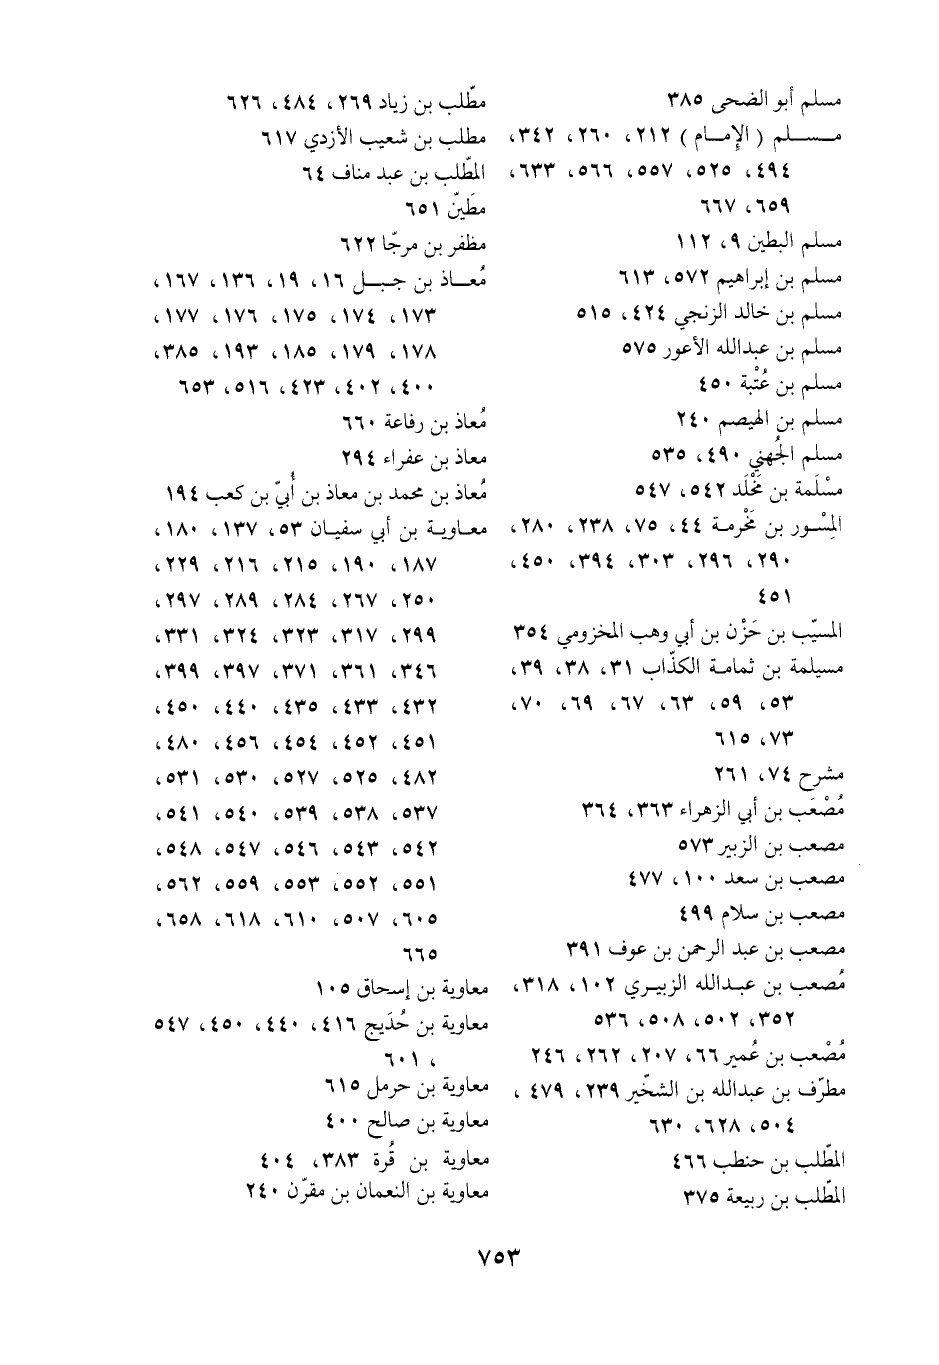 مسلم أبو الضحى ٣٨٥
مسلم ( الإمام ) ٢١٢، ٢٦٠، ٣٤٢،
٤٩٤، ٥٢٥، ٥٥٧، ٥٦٦، ٦٣٣،
٦٥٩، ٦٦٧
مسلم البطين ٩، ١١٢
مسلم بن إبراهيم ٥٧٢، ٦١٣
مسلم بن خالد الزنجي ٤٢٤، ٥١٥
مسلم بن عبدالله الأعور ٥٧٥
مسلم بن عُتْبة ٤٥٠
مسلم بن الهيصم ٢٤٠
مسلم الجُهني ٤٩٠، ٥٣٥
مسْلَمة بن مَخْلَد ٥٤٢، ٥٤٧
المِسْور بن مَخْرمة ٤٤، ٧٥، ٢٣٨، ٢٨٠،
٢٩٠، ٢٩٦، ٣٠٣، ٣٩٤، ٤٥٠،
٤٥١
المسيّب بن حَزْن بن أبي وهب المخزومي ٣٥٤
مسيلمة بن ثمامة الكذّاب ٣١، ٣٨، ٣٩،
٥٣، ٥٩، ٦٣، ٦٧، ٦٩، ٧٠،
٧٣، ٦١٥
مشرح ٧٤، ٢٦١
مُصْعَب بن أبي الزهراء ٣٦٣، ٣٦٤
مصعب بن الزبير ٥٧٣
مصعب بن سعد ١٠٠، ٤٧٧
مصعب بن سلام ٤٩٩
مصعب بن عبد الرحمن بن عوف ٣٩١
مُصعب بن عبدالله الزبيري ١٠٢، ٣١٨،
٣٥٢، ٥٠٢، ٥٠٨، ٥٣٦
مُصْعب بن عُمير ٦٦، ٢٠٧، ٢٦٢، ٢٤٦
مطرّف بن عبدالله بن الشخّير ٢٣٩، ٤٧٩ ،
٥٠٤، ٦٢٨، ٦٣٠
المطّلب بن حنطب ٤٦٦
المطّلب بن ربيعة ٣٧٥
مطّلب بن زياد ٢٦٩، ٤٨٤، ٦٢٦
مطلب بن شعيب الأزدي ٦١٧
المطّلب بن عبد مناف ٦٤
مطَينّ ٦٥١
مظفر بن مرجّا ٦٢٢
مُعاذ بن جبل ١٦، ١٩، ١٣٦، ١٦٧،
١٧٣، ١٧٤، ١٧٥، ١٧٦، ١٧٧،
١٧٨، ١٧٩، ١٨٥، ١٩٣، ٣٨٥،
٤٠٠، ٤٠٢، ٤٢٣، ٥١٦، ٦٥٣
مُعاذ بن رفاعة ٦٦٠
معاذ بن عفراء ٢٩٤
مُعاذ بن محمد بن معاذ بن أُبيّ بن كعب ١٩٤
معاوية بن أبي سفيان ٥٣، ١٣٧، ١٨٠،
١٨٧، ١٩٠، ٢١٥، ٢١٦، ٢٢٩،
٢٥٠، ٢٦٧، ٢٨٤، ٢٨٩، ٢٩٧،
٢٩٩، ٣١٧، ٣٢٣، ٣٢٤، ٣٣١،
٣٤٦، ٣٦١، ٣٧١، ٣٩٧، ٣٩٩،
٤٣٢، ٤٣٣، ٤٣٥، ٤٤٠، ٤٥٠،
٤٥١، ٤٥٢، ٤٥٤، ٤٥٦، ٤٨٠،
٤٨٢، ٥٢٥، ٥٢٧، ٥٣٠، ٥٣١،
٥٣٧، ٥٣٨، ٥٣٩، ٥٤٠، ٥٤١،
٥٤٢، ٥٤٣، ٥٤٦، ٥٤٧، ٥٤٨،
٥٥١، ٥٥٢، ٥٥٣، ٥٥٩، ٥٦٢،
٦٠٥، ٥٠٧، ٦١٠، ٦١٨، ٦٥٨،
٦٦٥
معاوية بن إسحاق ١٠٥
معاوية بن حُدَيج ٤١٦، ٤٤٠، ٤٥٠، ٥٤٧
، ٦٠١
معاوية بن حرمل ٦١٥
معاوية بن صالح ٤٠٠
معاوية بن قُرة ٣٨٣، ٤٠٤
معاوية بن النعمان بن مقرّن ٢٤٠
٧٥٣